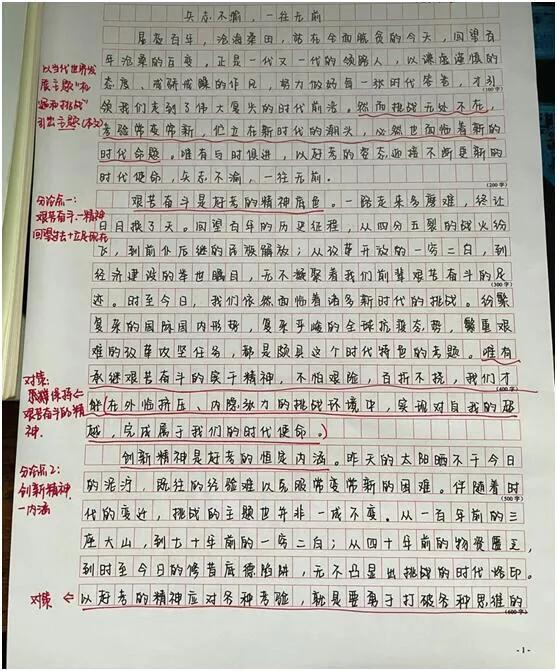 矢志不渝，一往无前
屡变百年，沧海桑田，站在全面脱贫的今天，回望百
年沧桑的巨变，正是一代又一代的领路人，以谦虚谨慎的
态度、戒骄戒躁的作风，努力做好每一张时代答卷，才引
(100字)
领我们走到了伟大复兴的时代前沿。然而挑战无处不在，
考验常变常新，伫立在新时代的潮头，必然也面临着新的
时代命题。唯有与时俱进，以好考的姿态迎接不断更新的
时代使命，矢志不渝，一往无前。
(200字)
以当代世界发
展主题"机
遇和挑战"
引出主题(本文)
艰苦奋斗是好考的精神底色。一路走来多磨难，终让
日月换了天。回望百年的历史征程，从四分五裂的战火纷
飞，到前仆后继的民族解放；从改革开放的一穷二白，到
经济建设的举世瞩目，无不凝聚着我们前辈艰苦奋斗的足
(300字)
迹。时至今日，我们依然面临着诸多新时代的挑战。纷繁
复杂的国际国内形势，复杂严峻的全球抗疫态势，繁重艰
难的改革攻坚任务，都是颇具这个时代特色的考题。唯有
承继艰苦奋斗的实干精神，不怕艰险，百折不挠，我们才
(400字)
能在外临挤压、内隐张力的挑战环境中，实现对自我的超
越，完成属于我们的时代使命。
分论点一：
艰苦奋斗-精神
回望过去+立足现在
对策：
继续保持
艰苦奋斗的精
神.
创新精神是好考的恒定内涵。昨天的太阳晒不干今日
的泥泞，既往的经验难以克服常变常新的困难。伴随着时
(500字)
代的变迁，挑战的主题也并非一成不变。从一百年前的三
座大山，到七十年前的一穷二白；从四十年前的物资匮乏，
到时至今日的修昔底德陷阱，无不凸显出挑战的时代烙印。
以好考的精神应对各种考验，就是要勇于打破各种思维的
(600字)
分论点2：
创新精神
-内涵
对策
-1-